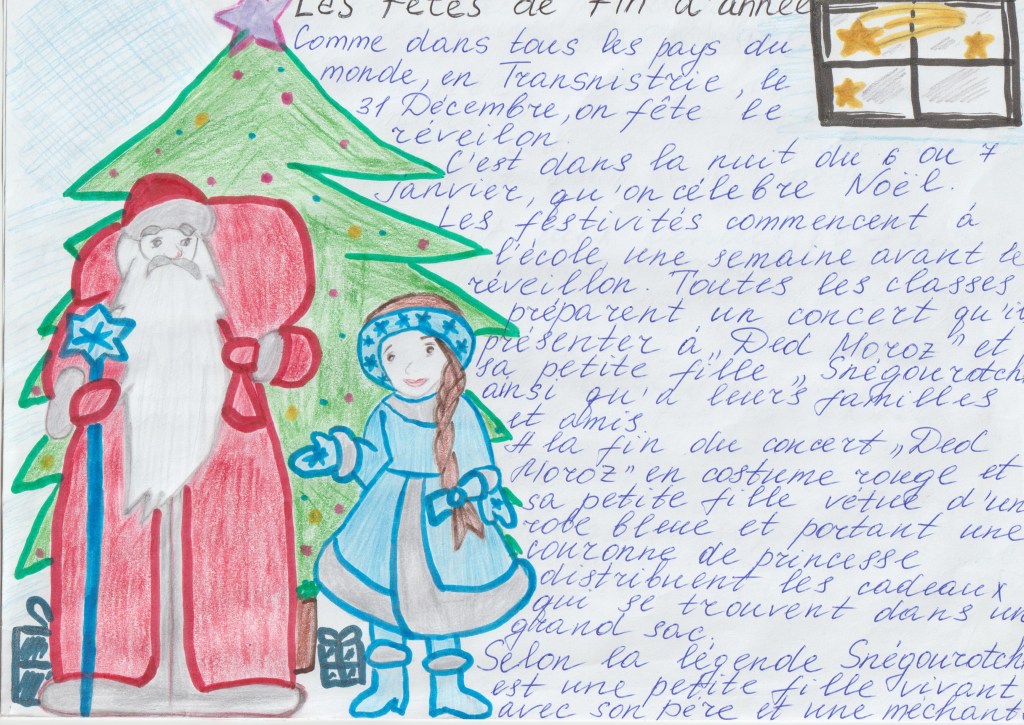 Les fêtes de fin d'année
Comme dans tous les pays du
monde, en Transnistrie, le
31 Décembre, on fête le
réveilon.
C'est dans la nuit du 6 ou 7
Janvier, qu'on célebre Noël.
Les festivités commencent á
l'école, une semaine avant le
réveillon. Toutes les classes
préparent un concert qu'il
présenter á „Ded Moroz" et
sa petite fille „Snégourotch
ainsi qu'á leurs familles
et amis.
A la fin du concert „Ded
Moroz" en costume rouge et
sa petite fille vétue d'un
robe bleue et portant une
couronne de princesse
distribuent les cadeaux
qui se trouvent dans un
grand sac.
Sélon la légende Snégourotch
est une petite fille vivant
avec son pére et une méchant